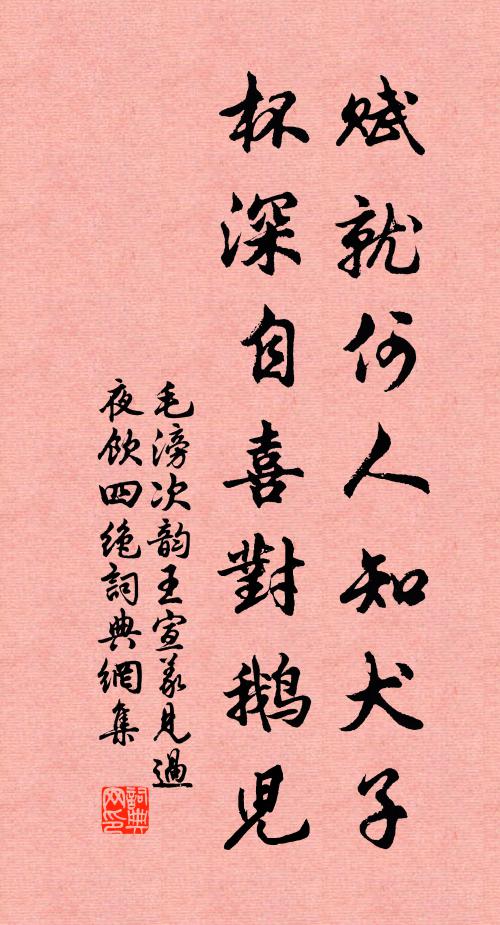 賦就何人知犬子
杯深自喜對鵝兒
毛滂次韵王宣義見過
夜飲四絶詞典網集
詞典
网印